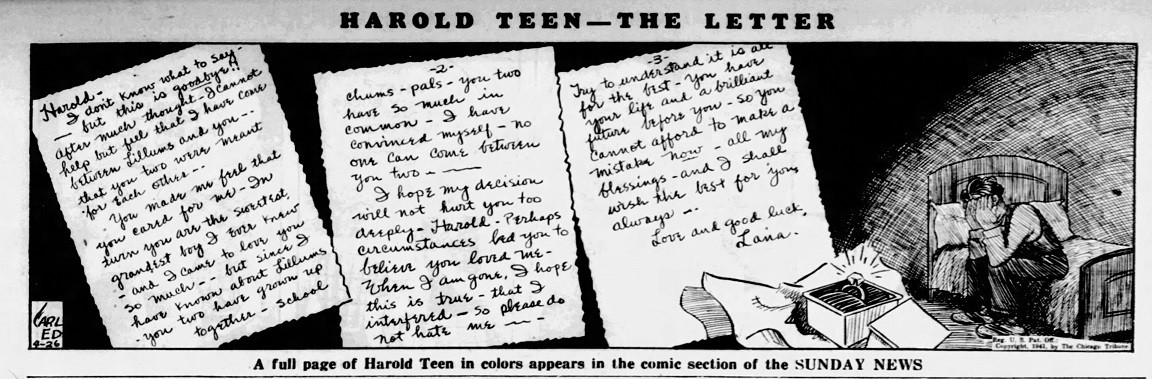 HAROLD TEEN—THE LETTER
Harold-
I don't know what to say-
- but this is goodbye!!
after much thought - I cannot
help but feel that I have come
between Lillums and you--
that you two were meant
for each other---
You made me feel that
you cared for me - In
turn you are the sweetest,
grandest boy I ever knew
- and I came to love you
so much -- but since I
have known about Lillums
- you two have grown up
together - school
-2-
chums - pals - you two
have so much in
common - I have
convinced myself - no
one can come between
you two -
I hope my decision
will not hurt you too
deeply - Harold - Perhaps
circumstances led you to
believe you loved me-
When I am gone, I hope
this is true - that I
interfered - So please do
not hate me
-3-
Try to understand it is all
for the best - you have
your life and a brilliant
future before you - so you
cannot afford to make a
mistake now - all my
blessings - and I shall
wish the best for you,
always --
Love and good luck,
Lana.
CARL
ED
4-26
Reg. U. S. Pat. Off.:
Copyright, 1941, by The Chicago Tribune
A full page of Harold Teen in colors appears in the comic section of the SUNDAY NEWS